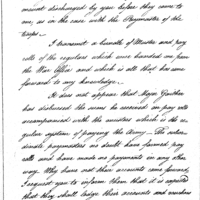 ment discharged by you before they come to
me, as in the case with the Paymaster of the
troops.
I transmit a bundle of Muster and pay
rolls of the regulars which were handed me from
the War Office and which is all that has come
forward to my knowledge.
It does not appear that Major Swan
has disbursed the sums he received on pay rolls
accompanied with the musters which is the re-
gular system of paying the Army. The subor-
dinate paymasters no doubt have formed pay
rolls and have made no payments in any other
way. Why have not their accounts come forward,
I request you to inform them that it is expected
that they shall lodge their accounts and vouchers